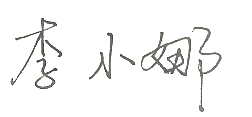 李小娜